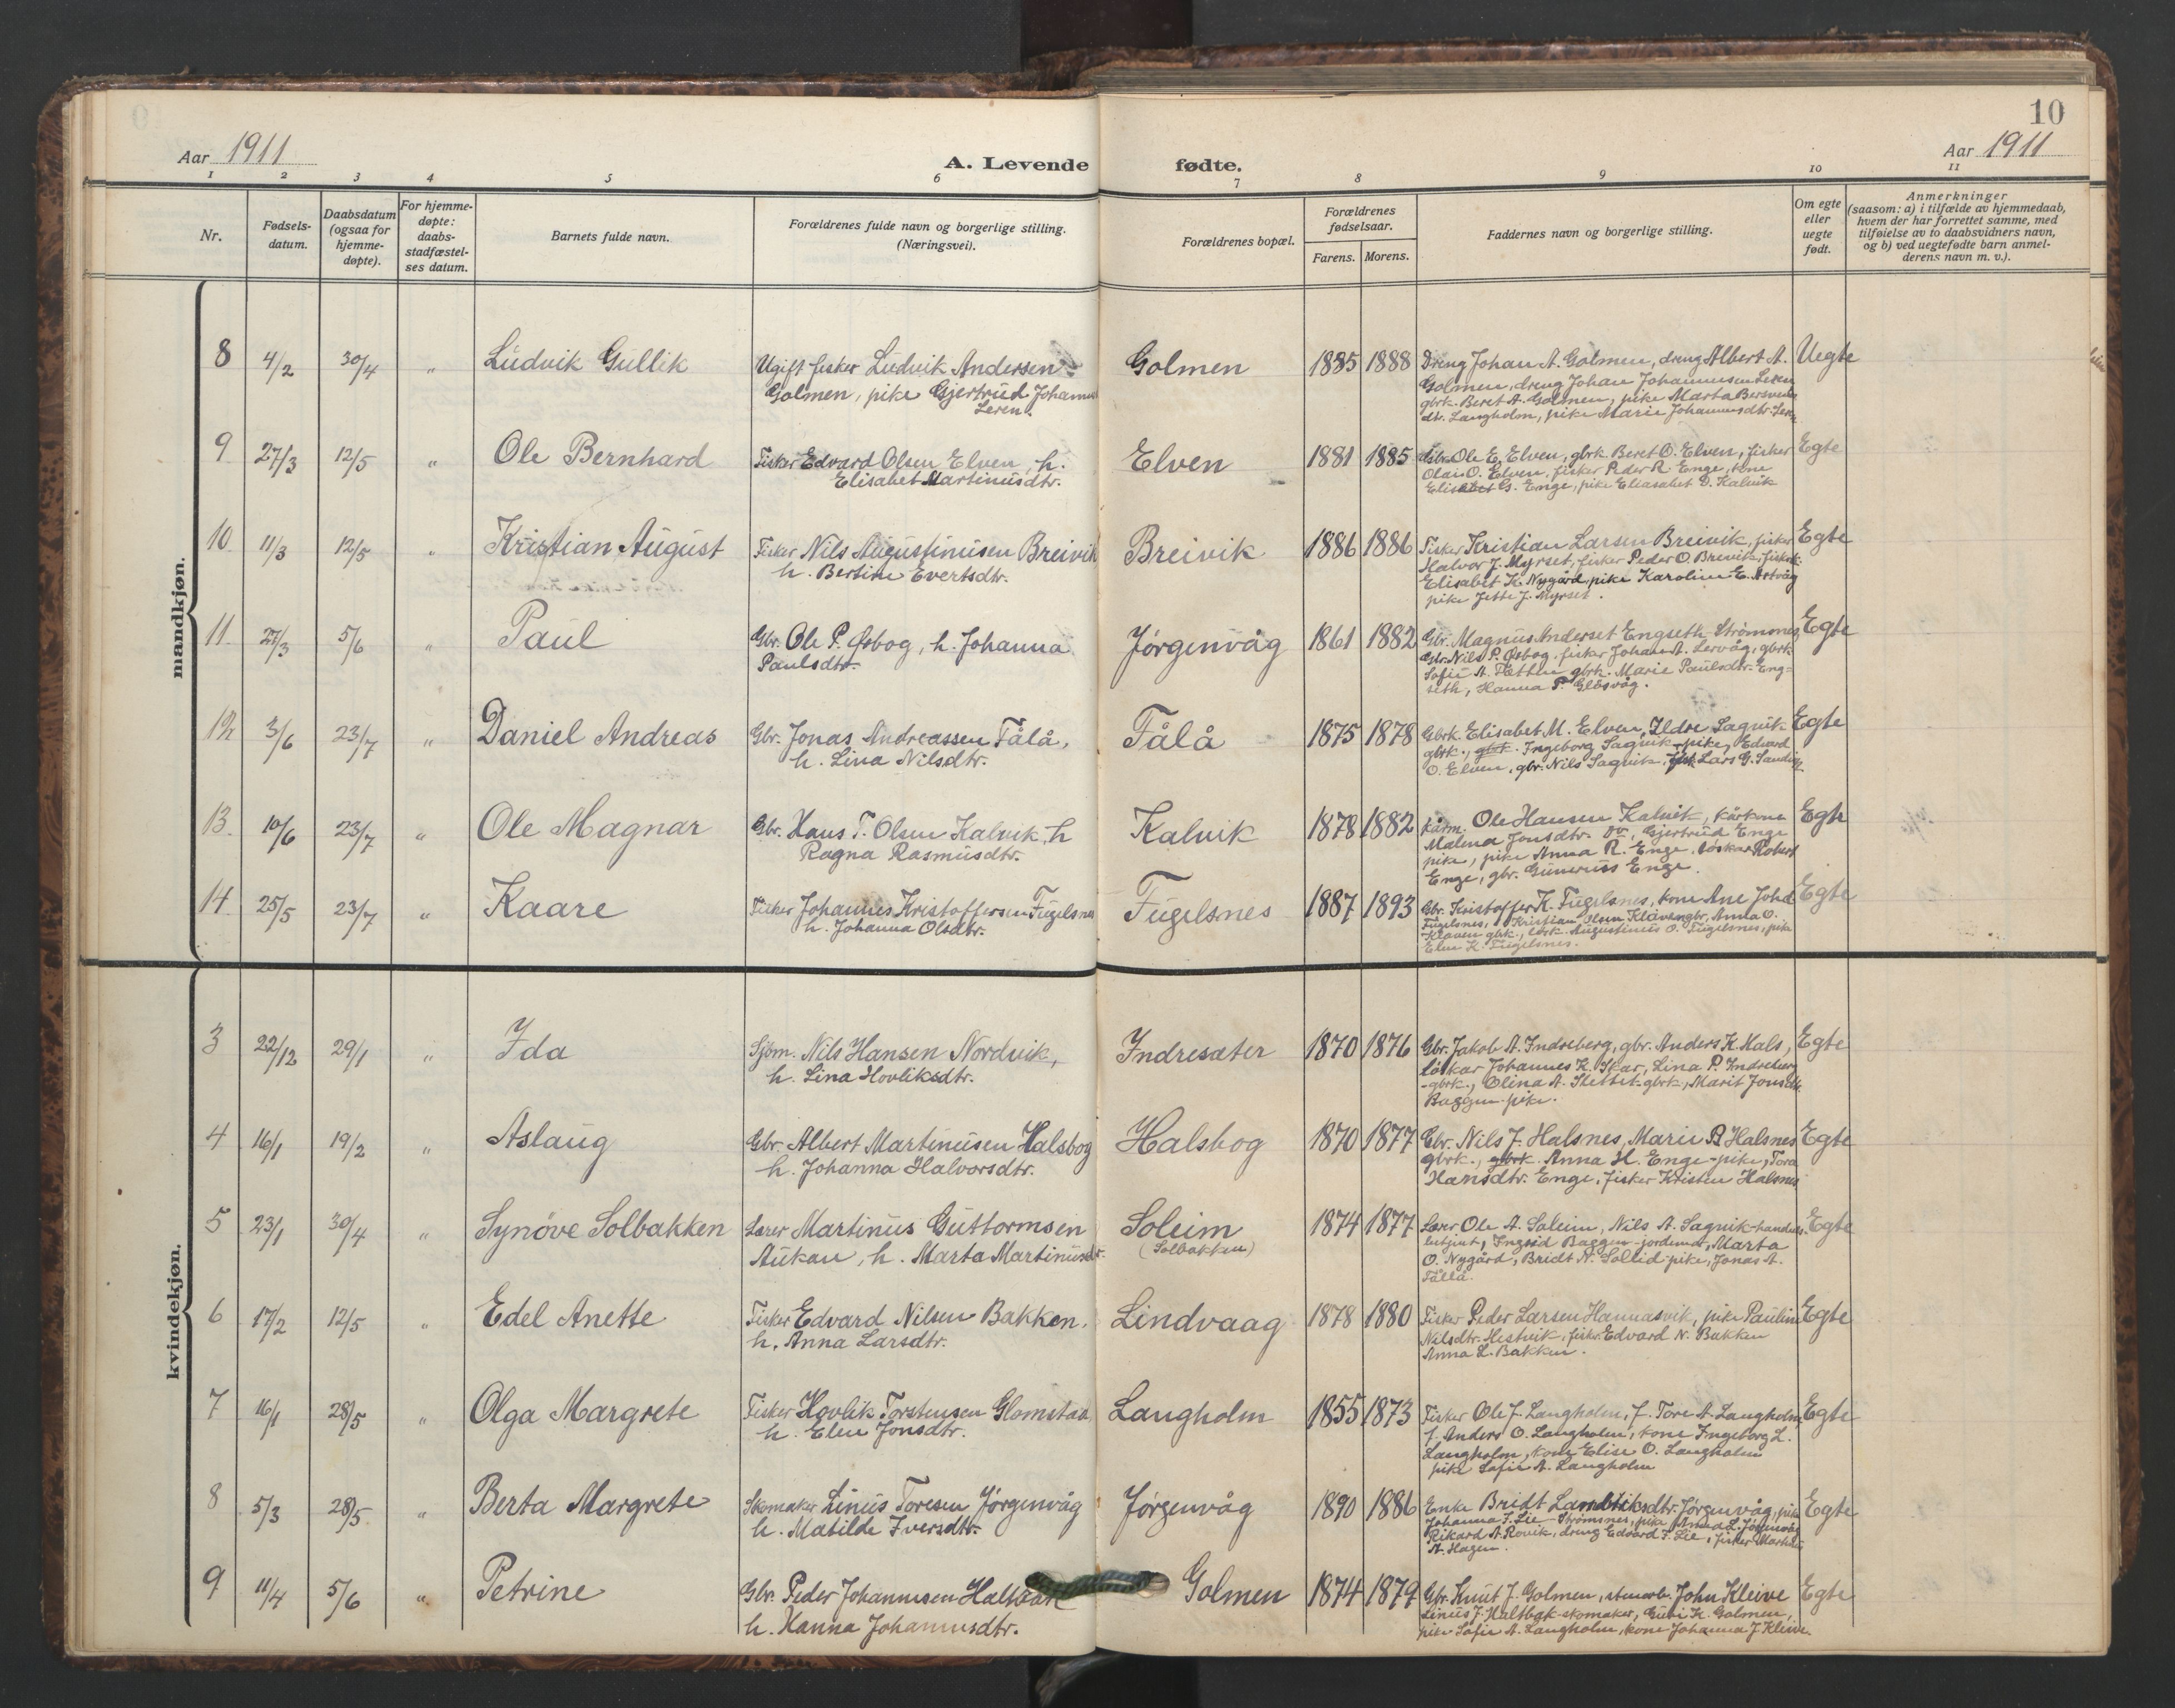 10
Aar 1911
A. Levende fødte.
Aar 1911
1 2 3 4 5 6 7 8 9 10 11
Nr.
Fødsels-
datum.
Daabsdatum
(ogsaa for
hjemme-
døpte).
For hjemme-
døpte:
daabs-
stadfæstel-
ses datum.
Barnets fulde navn.
Forældrenes fulde navn og borgerlige stilling.
(Næringsvei).
Forældrenes bopæl.
Forældrenes
fødselsaar.
Farens. Morens.
Faddernes navn og borgerlige stilling.
Om egte
eller
uegte
født.
Anmerkninger
(saasom: a) i tilfælde av hjemmedaab,
hvem der har forrettet samme, med
tilføielse av to daabsvidners navn,
og b) ved uegtefødte barn anmel-
derens navn m. v.).
mandkjøn.
8 4/2 30/4 " Ludvik Gullik
Ugift fisker Ludvik Andersen
Golmen, pike Gjertrud Johannes
Leren.
Golmen 1885 1888
Dreng Johan A. Golmen, dreng Albert A.
Golmen, dreng Johan Johannesen Leren
gbrk. Beret A. Golmen, pike Marta
dtr. Langholm, pike Marie Johannesdtr. Leren
Uegte
9 27/3 12/5 " Ole Bernhard
Fisker Edvard Olsen Elven, h.
Elisabet Martinusdtr.
Elven 1881 1885
Gbr. Ole E. Elven, gbrk. Beret O. Elven, fisker
Olai O. Elven, fisker Peder R. Enge, kone
Elisabet G. Enge, pike Eliasabet D. Kalvik
Egte
10 11/3 12/5 " Kristian August
Fisker Nils Augustinusen Breivik
h. Bertine Evertsdtr.
Breivik 1886 1886
Fisker Kristian Larsen Breivik, fisker
Halvor J. Myrset, fisker Peder O. Breivik, fiskerk.
Elisabet K. Nygård, pike Karoline E.
pike Jette J. Myrset.
Egte
11 27/3 5/6 " Paul
Gbr. Ole P. Osbog, h. Johanna
Paulsdtr.
Jørgenvåg 1861 1882
Gbr. Magnus Anderset Engseth Strømsnes,
Gbr. Nils P. Osbog, fisker Johan A. Lervåg, gbrk.
Sofie A. gbrk. Marie Paulsdtr. Eng-
seth, Hanna P. Glåsvåg.
Egte
12 3/6 23/7 " Daniel Andreas
Gbr. Jonas Andreassen Fålå,
h. Lina Nilsdtr.
Fålå 1875 1878
Gbrk. Elisabet M. Elven, Ildre Sagvik
gbrk., gbrk. Ingeborg Sagvik-pike, Edvard
O. Elven, gbr. Nils Sagvik, Lars G. Sandvig
Egte
13 10/6 23/7 " Ole Magnar
Gbr. Hans T. Olsen Kalvik, h
Ragna Rasmusdtr.
Kalvik 1878 1882
Kårm. Ole Hansen Kalvik, kårkona
Malena Jonsdtr. do, Gjertrud Enge
pike, pike Anna R. Enge, løskar Robert
Enge, gbr. Gunerius Enge.
Egte
14 25/5 23/7 " Kaare
Fisker Johannes Kristoffersen Fugelsnes
h. Johanna Olsdtr.
Fugelsnes 1887 1893
Gbr. Kristoffer K. Fugelsnes, kone Ane Johd
Fugelsnes, Kristian Olsen Klaven gbr, Anna O.
Klaven gbrk., Augustinus O. Fugelsnes, pike
Elen K. Fugelsnes.
Egte
kvindekjøn.
3 22/12 29/1 " Ida
Sjøm. Nils Hansen Nordvik,
h. Lina Hovliksdtr.
Indresæter 1870 1876
Gbr. Jakob A. Indreberg, gbr. Anders K. Hals,
løskar Johannes K. Skar, Lina P. Indreberg
-gbrk., Olina A. gbrk, Marit Jonsdtr.
Baggen-pike.
Egte
4 16/1 19/2 " Aslaug
Gbr. Albert Martinusen Halsbog
h. Johanna Halvorsdtr.
Halsbog 1870 1877
Gbr. Nils J. Halsnes, Marie B. Halsnes
gbrk., gbrk. Anna H. Enge-pike, Tora
Hansdtr. Enge, fisker Kristen Halsnes
Egte
5 23/1 30/4 " Synøve Solbakken
Lærer Martinus Guttormsen
Aukan, h. Marta Martinusdtr.
Soleim
(Solbakken)
1874 1877
Lærer Ole A. Soleim, Nils A. Sagvik-handels-
betjent, Ingrid Baggen-jordemor, Marta
O. Nygård, Bridt N. Sollid-pike, Jonas A.
Fålå.
Egte
6 17/2 12/5 " Edel Anette
Fisker Edvard Nilsen Bakken.
h. Anna Larsdtr.
Lindvaag 1878 1880
Fisker Peder Larsen Hannasvik, pike Pauline
Nilsdtr. Hestvik, fisker Edvard N. Bakken
Anna L. Bakken.
Egte
7 16/1 28/5 " Olga Margrete
Fisker Hovlik Torstensen Glomstad,
h. Elen Jonsdtr.
Langholm 1855 1873
Fisker Ole J. Langholm, f. Tore A. Langholm,
f. Anders O. Langholm, kone Ingeborg L.
Langholm, kone Elise O. Langholm
pike Sofie A. Langholm
Egte
8 5/3 28/5 " Berta Margrete
Skomaker Linus Toresen Jørgenvåg
h. Matilde Iversdtr.
Jørgenvåg 1890 1886
Enke Bridt Jørgenvåg, pike
Johanna I. Lie-Strømsnes, pike Anna L. Jørgenvåg
Rikard A. Rovik, dreng Edvard I. Lie, fisker
A. Hagen.
Egte
9 11/4 5/6 " Petrine
Gbr. Peder Johannesen Haltbak
h. Hanna Johannesdtr.
Golmen 1874 1879
Gbr. Knut J. Golmen, stenarb. John Kleive
Linus J. Haltbak-skomaker, Guri K. Golmen,
pike Sofie A. Langholm, kone Johanna J. Kleive.
Egte